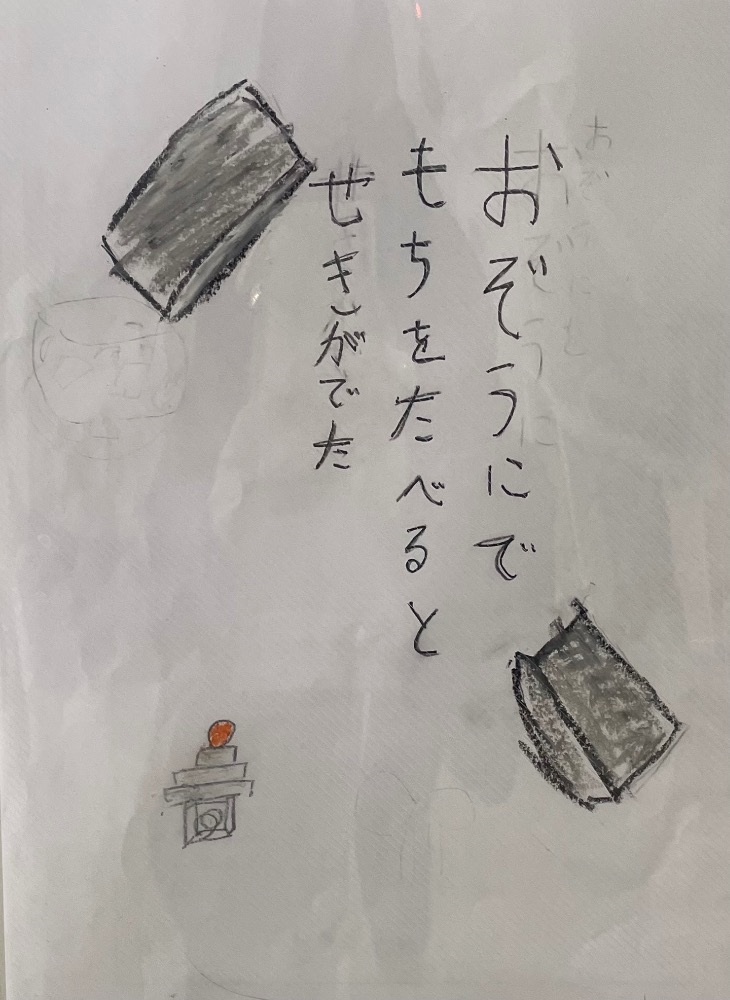 おぞうにで
もちをたべると
せきがでた